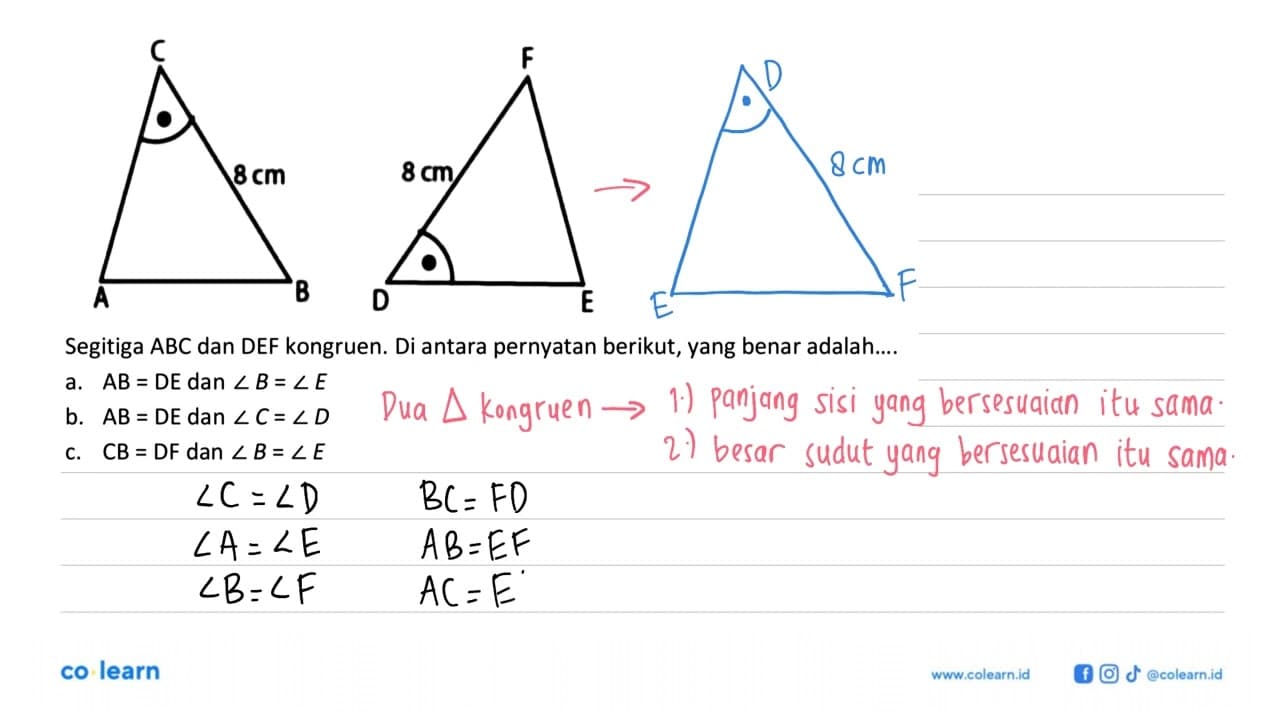 C
F
D
8 cm
8 cm
8 cm
A
B
D
E
E
F
Segitiga ABC dan DEF kongruen. Di antara pernyatan berikut, yang benar adalah....
a. AB = DE dan ∠ B = ∠ E
b. AB = DE dan ∠ C = ∠ D
c. CB = DF dan ∠ B = ∠ E
Dua △ kongruen → 1.) panjang sisi yang bersesuaian itu sama.
2.) besar sudut yang bersesuaian itu sama.
∠C = ∠D BC = FD
∠A = ∠E AB = EF
∠B = ∠F AC = E
co learn
www.colearn.id
@colearn.id